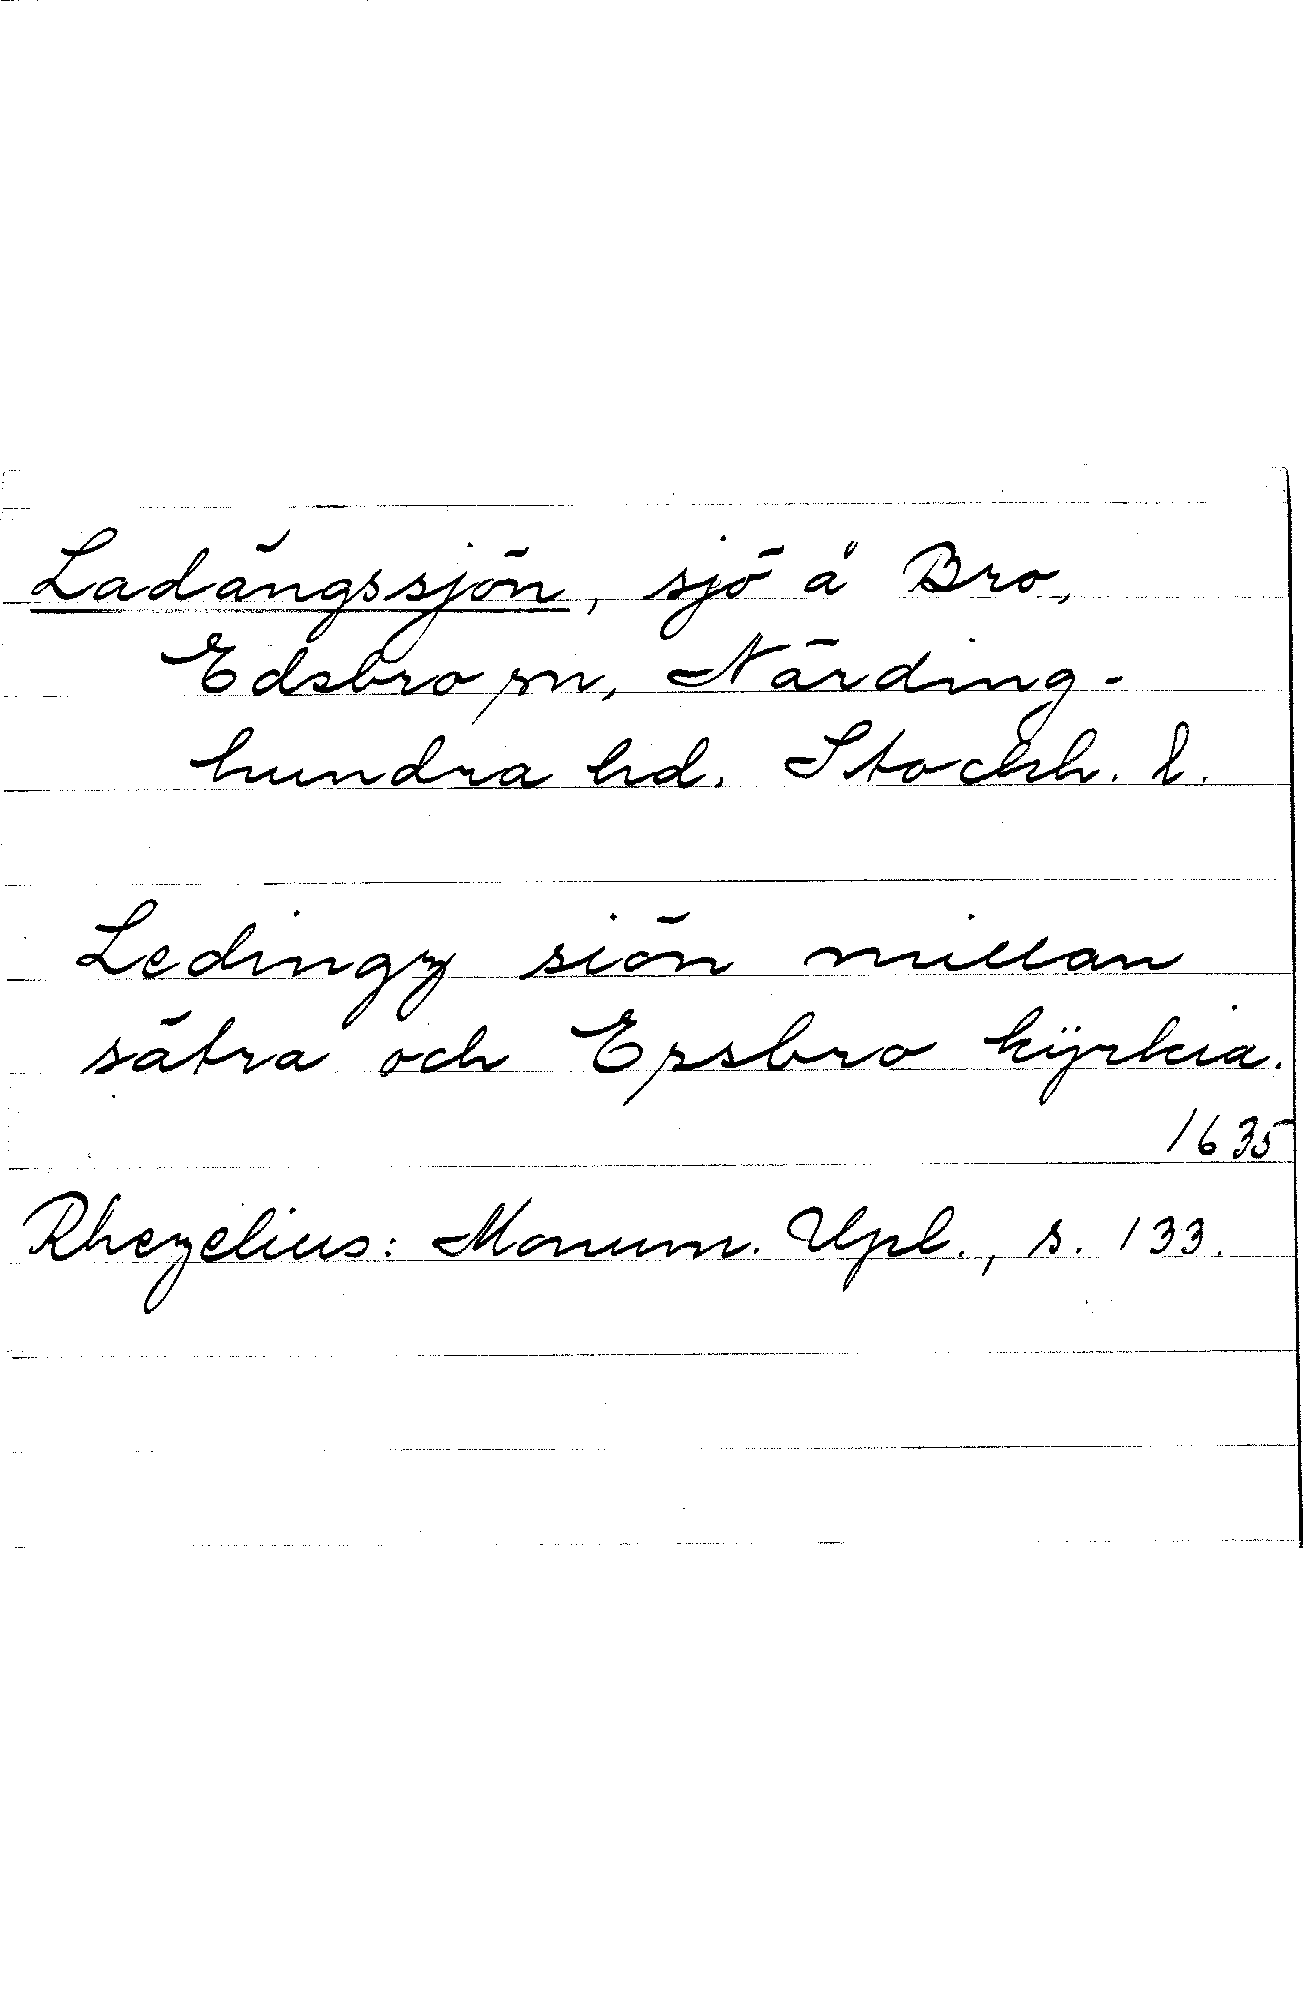 Ladängssjön, sjö å Bro,
Edsbro sn, Närding-
hundra hd. Stockh. l.
Ledingz siön millan
sätra och Ersbro kÿrkia.
1635
Rhezelius: Monum. Upl., s. 133.